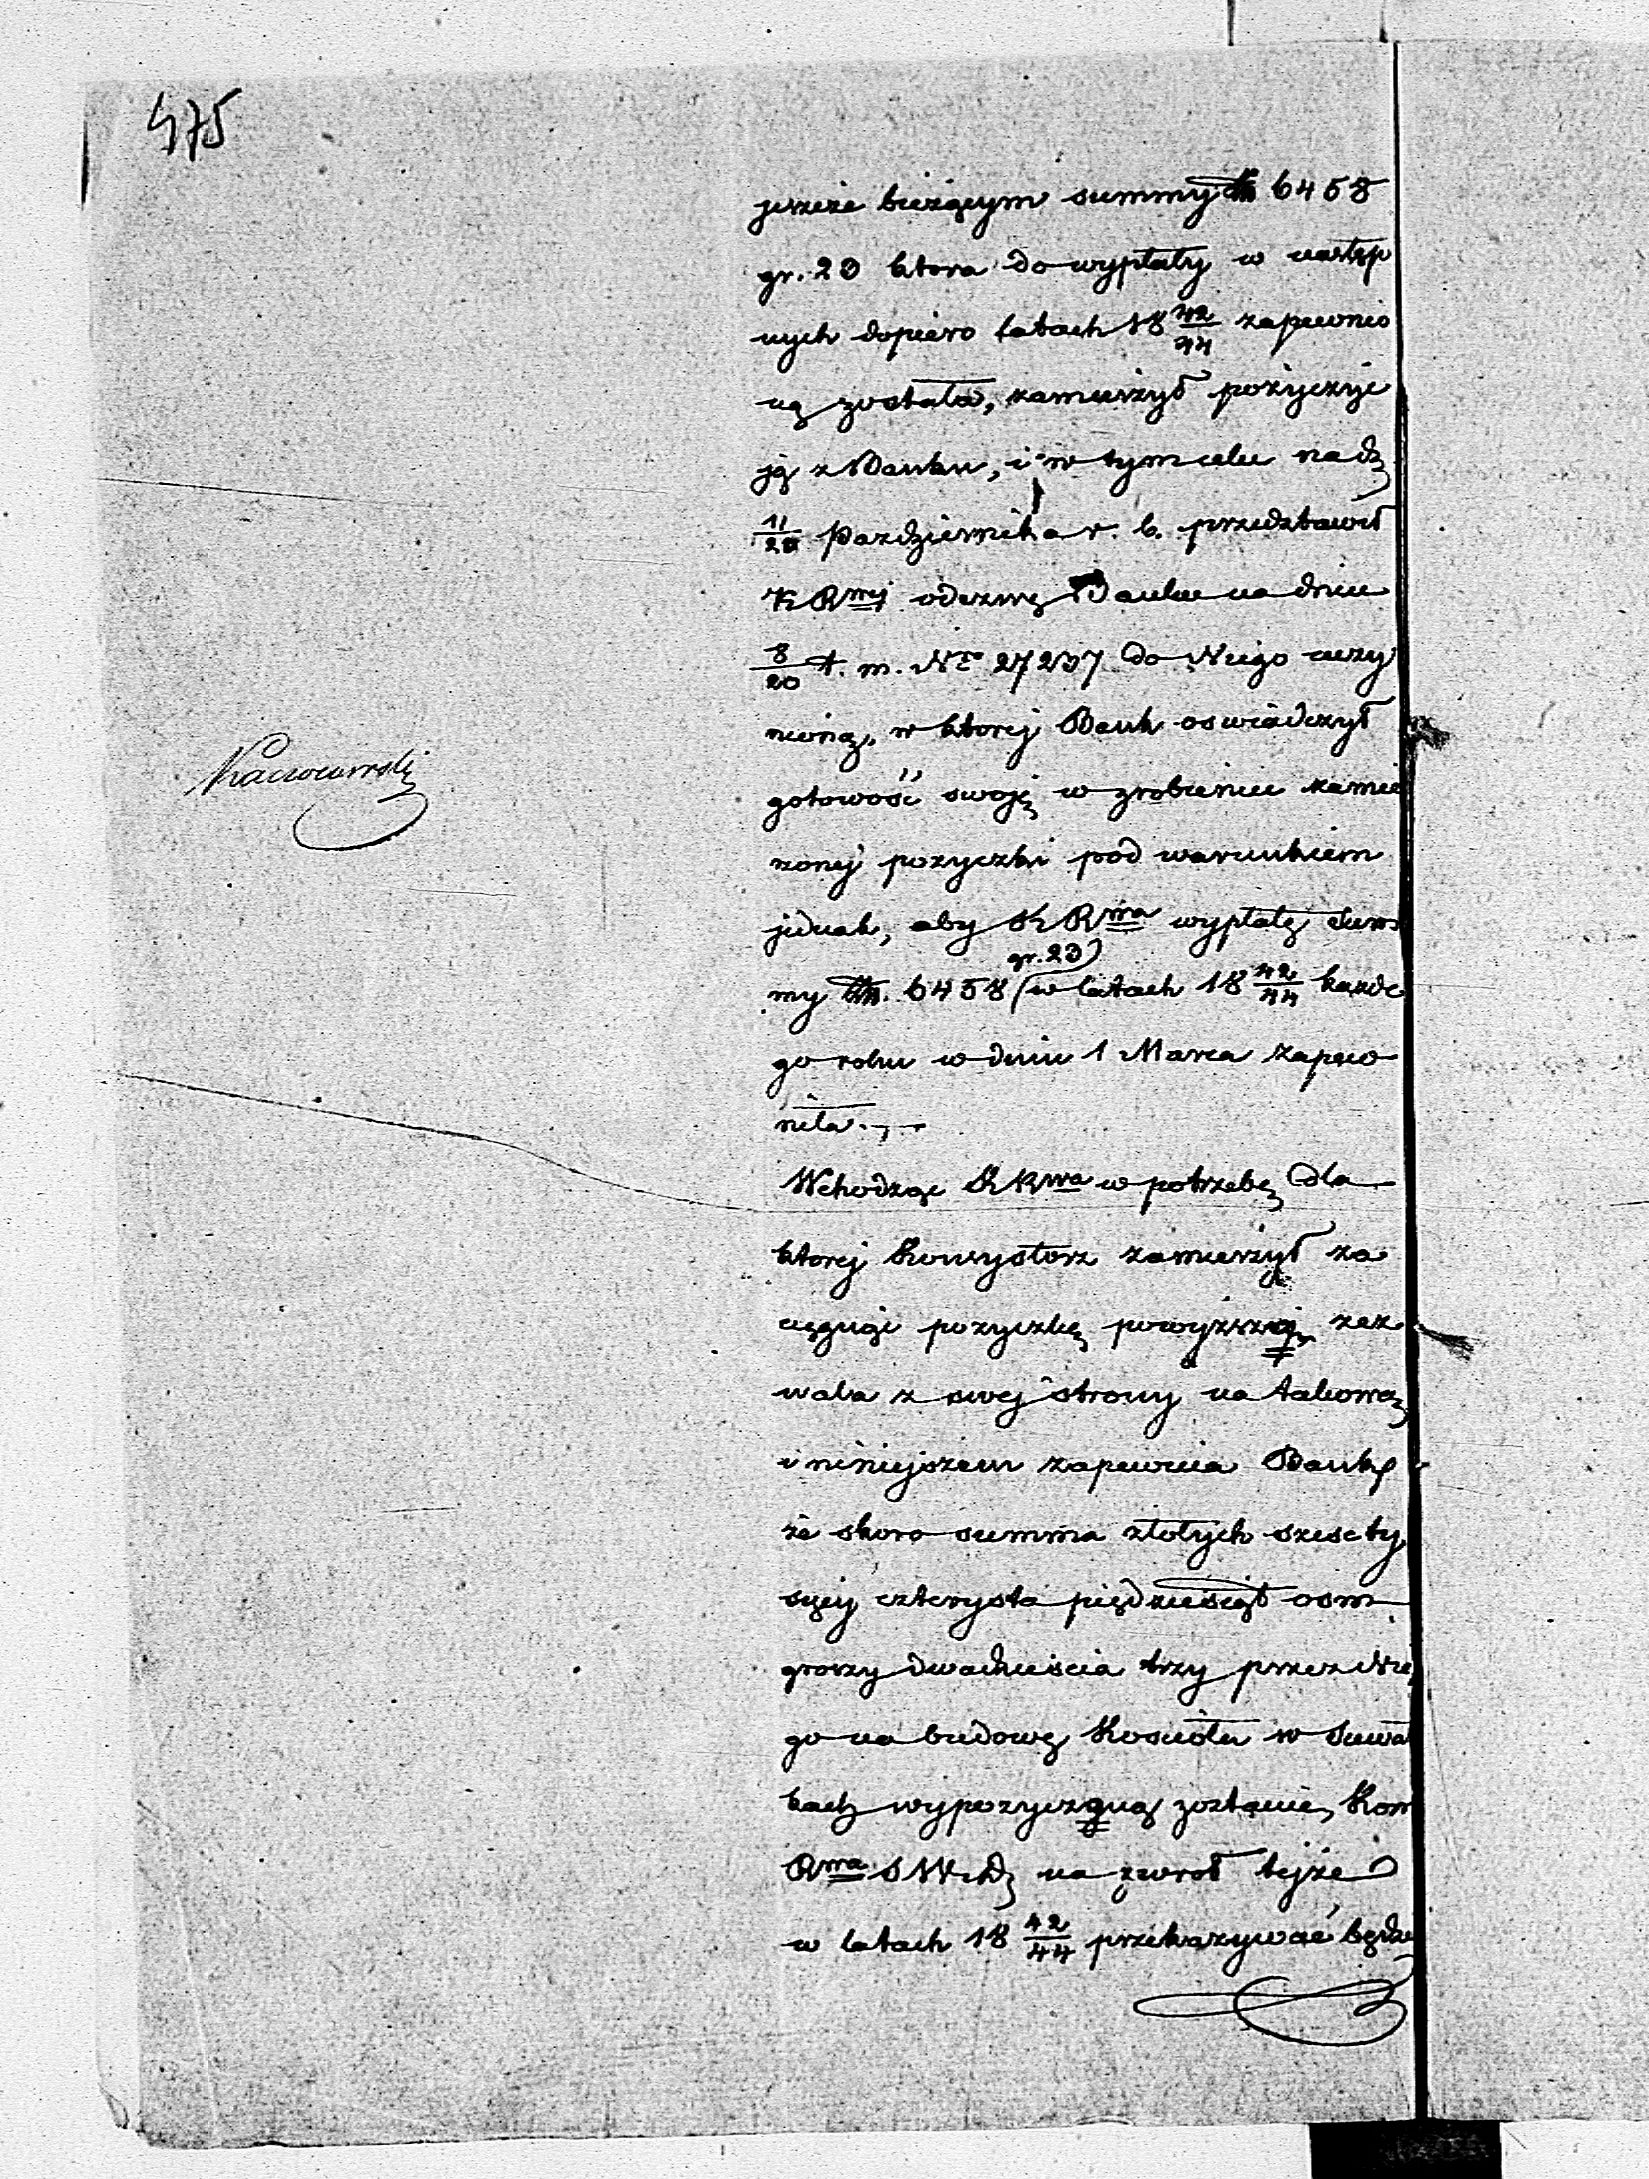 475
jeszcze bieżącym summy Złp 6458
gr. 23 ktora do wypłaty w następ
nych dopiero latach 18 42/44 zapewnio
ną została, zamierzył pożyczyć
ją z Banku, i w tym celu nadz
11/23 Pazdziernika r. b. przedstawił
K Rwej odezwę Banku na dniu
8/20 t. m. Nro 27237 do Niego uczy
nioną, w ktorej Bank oswiadczył
gotowość swoję w zrobieniu zamie
rzonej pozyczki pod warunkiem
jednak, aby K Rwa wypłatę Sum
gr. 23
my Złp. 6458 w latach 18 42/44 każde
go roku w dniu 1 Marca zapew
niła.
Wchodząc K Rwa w potrzebę dla
ktorej Konsystorz zamierzył za
ciągnąć pozyczkę powyższą zez
wala z swej strony na takową
i niniejszem zapewnia Bank
że skoro summa złotych szesc ty
sięcy czterysta pięćdziesiąt osm
groszy dwadzieścia trzy przez Nie
go na budowę Kościoła w Suwał
kach wypozyczoną zostanie, Kom
Rwa S W i D na zwrot tejże
w latach 18 42/44 przekazywać będzie